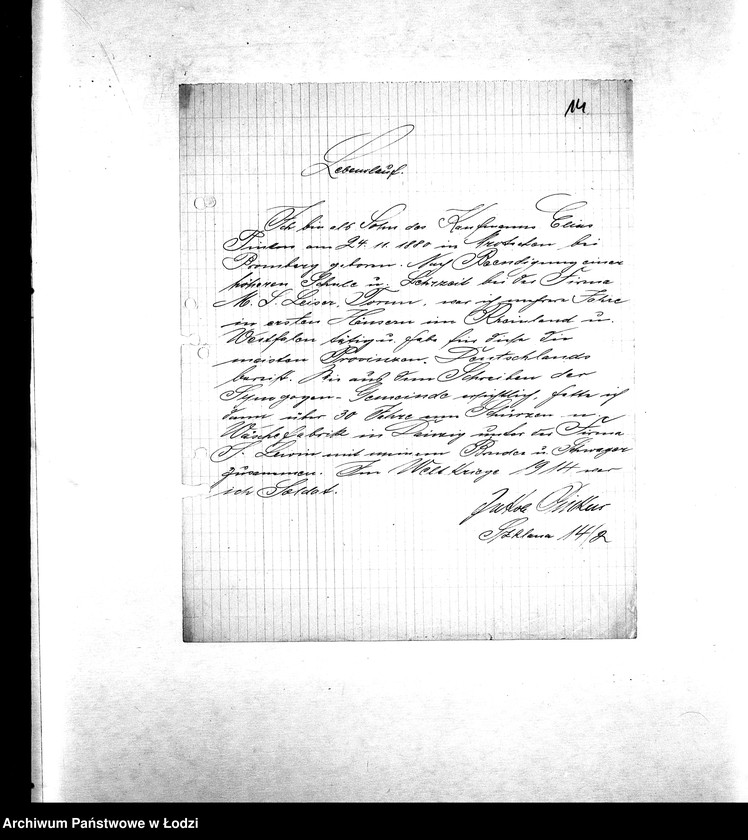 14
Lebenslauf.
Ich bin als Sohn des Kaufmanns Elias
Pinkus am 24. 11. 1880 in Mrotschen, bei
Bromberg geboren. Nach Beendigung einer
höheren Schule u. Lehrzeit bei der Firma
M. S. Leiser, Torun, war ich mehrere Jahre
in ersten Häusern im Rheinland u.
Westfalen tätig u. habe für diese die
meisten Provinzen, Deutschlands
bereist. Wie aus dem Schreiben der
Synagogen-Gemeinde ersichtlich, hatte ich
dann über 30 Jahre eine Schürzen u.
Wäschefabrik in Danzig unter der Firma
J. Lewin mit meinem Bruder u. Schwager
zusammen. Im Weltkriege 1914 war
ich Soldat.
Jakob Pinkus
Szklana 14/2
Archiwum Państwowe w Łodzi